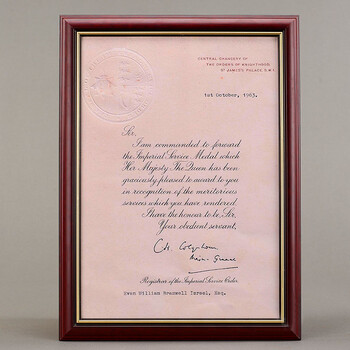 CENTRAL CHANCERY OF
THE ORDERS OF KNIGHTHOOD
ST JAMES'S PALACE S.W.1.
1st October, 1963.
Sir,
I am commanded to forward
the Imperial Service Medal which
Her Majesty The Queen has been
graciously pleased to award to you
in recognition of the meritorious
services which you have rendered.
I have the honour to be, Sir,
Your obedient servant,
Registrar of the Imperial Service Order
Evan William Bramwell Israel, Esq.